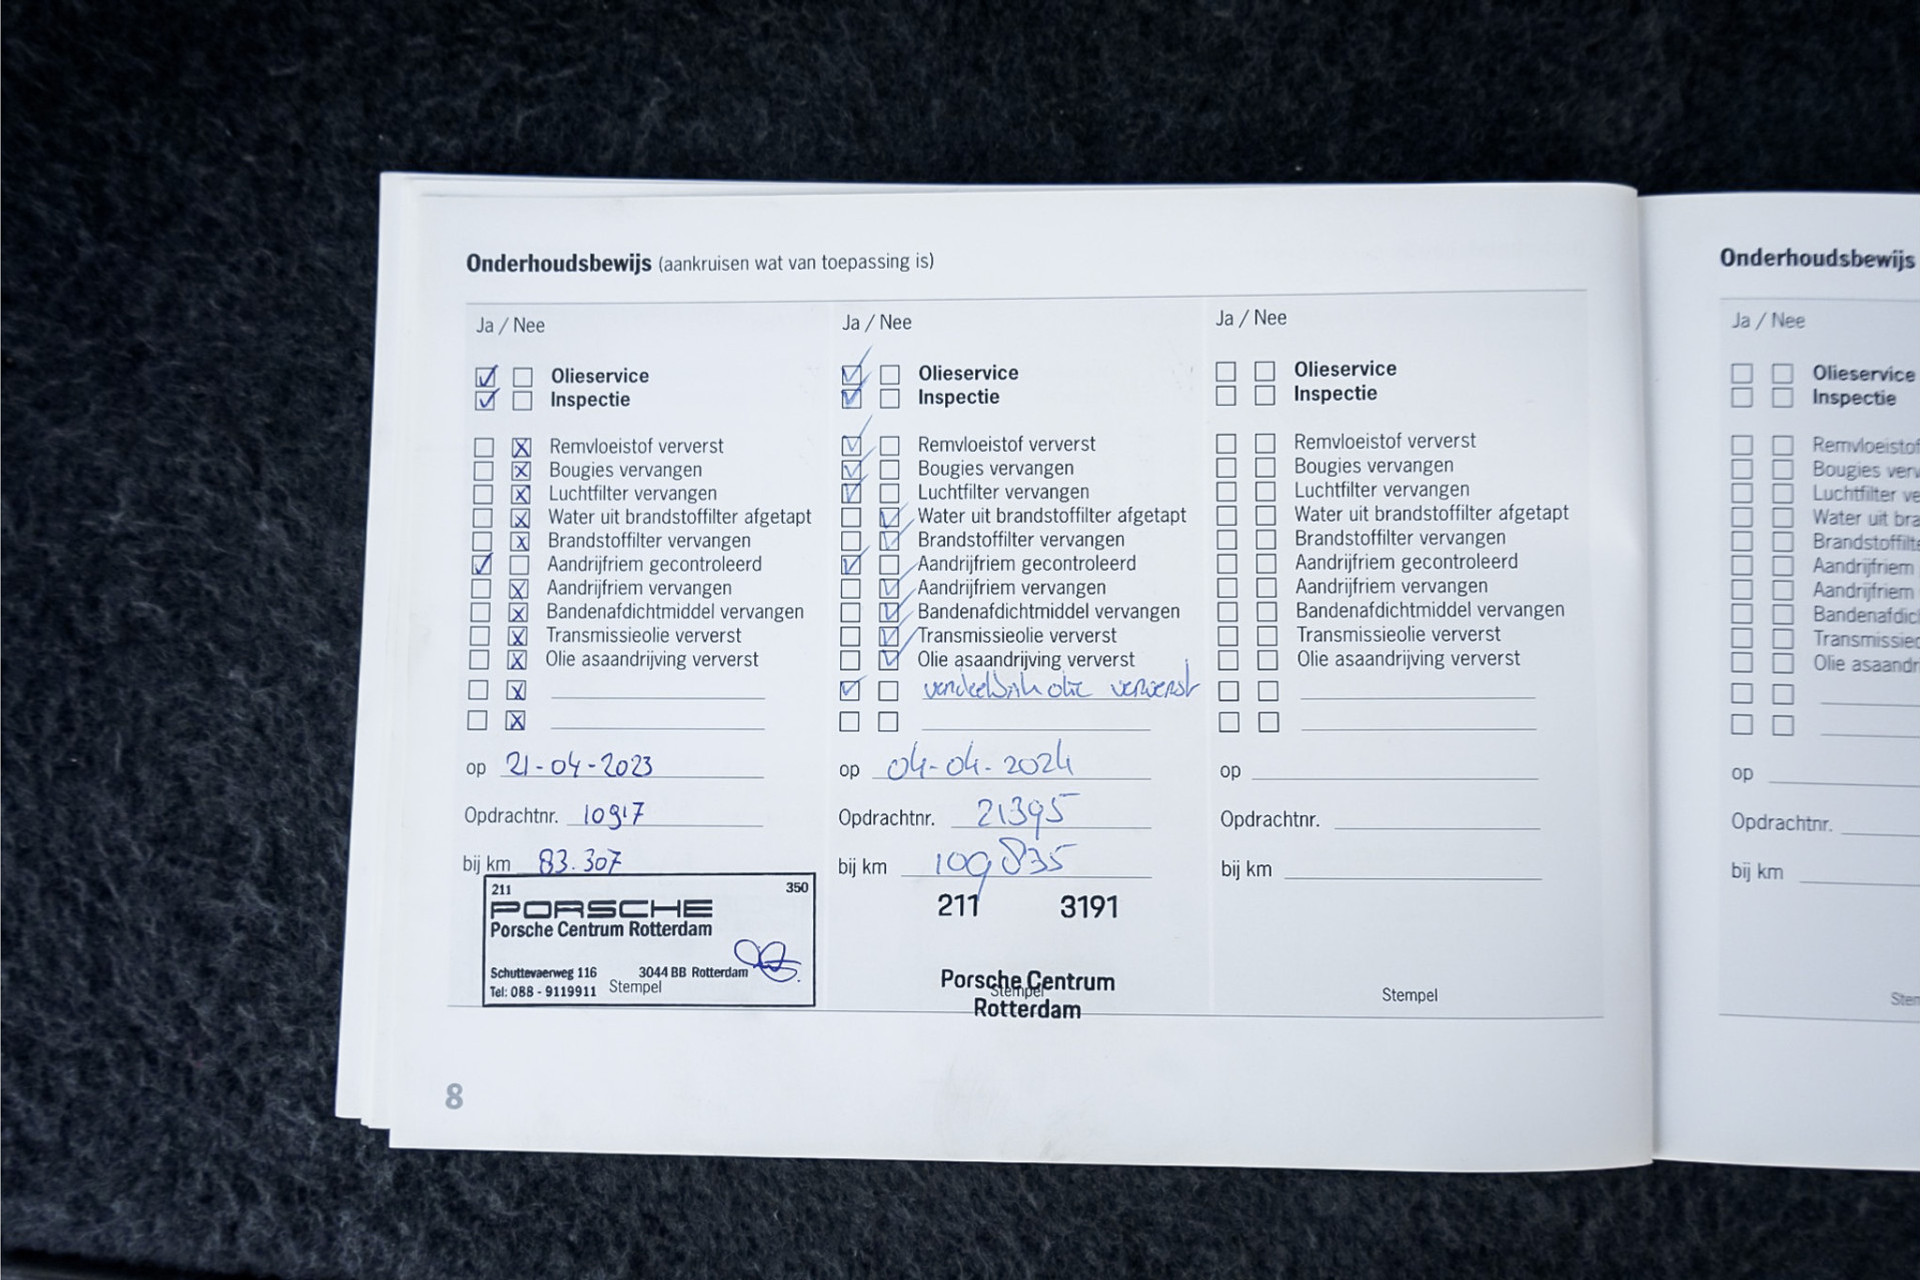 Onderhoudsbewijs (aankruisen wat van toepassing is)
Ja / Nee
Olieservice
Inspectie
Remvloeistof ververst
Bougies vervangen
Luchtfilter vervangen
Water uit brandstoffilter afgetapt
Brandstoffilter vervangen
Aandrijfriem gecontroleerd
Aandrijfriem vervangen
Bandenafdichtmiddel vervangen
Transmissieolie ververst
Olie asaandrijving ververst
op 21-04-2023
Opdrachtnr. 10917
bij km 83.307
211 350
PORSCHE
Porsche Centrum Rotterdam
Schuttevaerweg 116 3044 BB Rotterdam
Tel: 088 - 9119911 Stempel
Ja / Nee
Olieservice
Inspectie
Remvloeistof ververst
Bougies vervangen
Luchtfilter vervangen
Water uit brandstoffilter afgetapt
Brandstoffilter vervangen
Aandrijfriem gecontroleerd
Aandrijfriem vervangen
Bandenafdichtmiddel vervangen
Transmissieolie ververst
Olie asaandrijving ververst
olie ververst
op 04-04-2024
Opdrachtnr. 21395
bij km 109835
211 3191
Porsche Centrum
Stempel
Rotterdam
Ja / Nee
Olieservice
Inspectie
Remvloeistof ververst
Bougies vervangen
Luchtfilter vervangen
Water uit brandstoffilter afgetapt
Brandstoffilter vervangen
Aandrijfriem gecontroleerd
Aandrijfriem vervangen
Bandenafdichtmiddel vervangen
Transmissieolie ververst
Olie asaandrijving ververst
op
Opdrachtnr.
bij km
Stempel
8
Onderhoudsbewijs
Ja / Nee
Olieservice
Inspectie
Remvloeistof
Bougies verv
Luchtfilter ve
Water uit bra
Brandstoffilte
Aandrijfriem
Aandrijfriem
Bandenafdic
Transmissieo
Olie asaandr
op
Opdrachtnr.
bij km
Stem